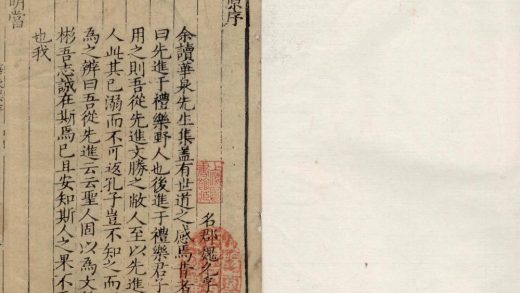 序
名郡魏允
余讀華泉先生集蓋有世道之感焉昔者
曰先進于禮樂野人也後進于禮樂君子
用之則吾從先進文勝之敝人至以先進
人此其已溺而不可返孔子豈不知之而
為之辨曰吾從先進云云聖人因以為文
彬吾志誠在斯焉已且安知斯人之果不
也我
明當